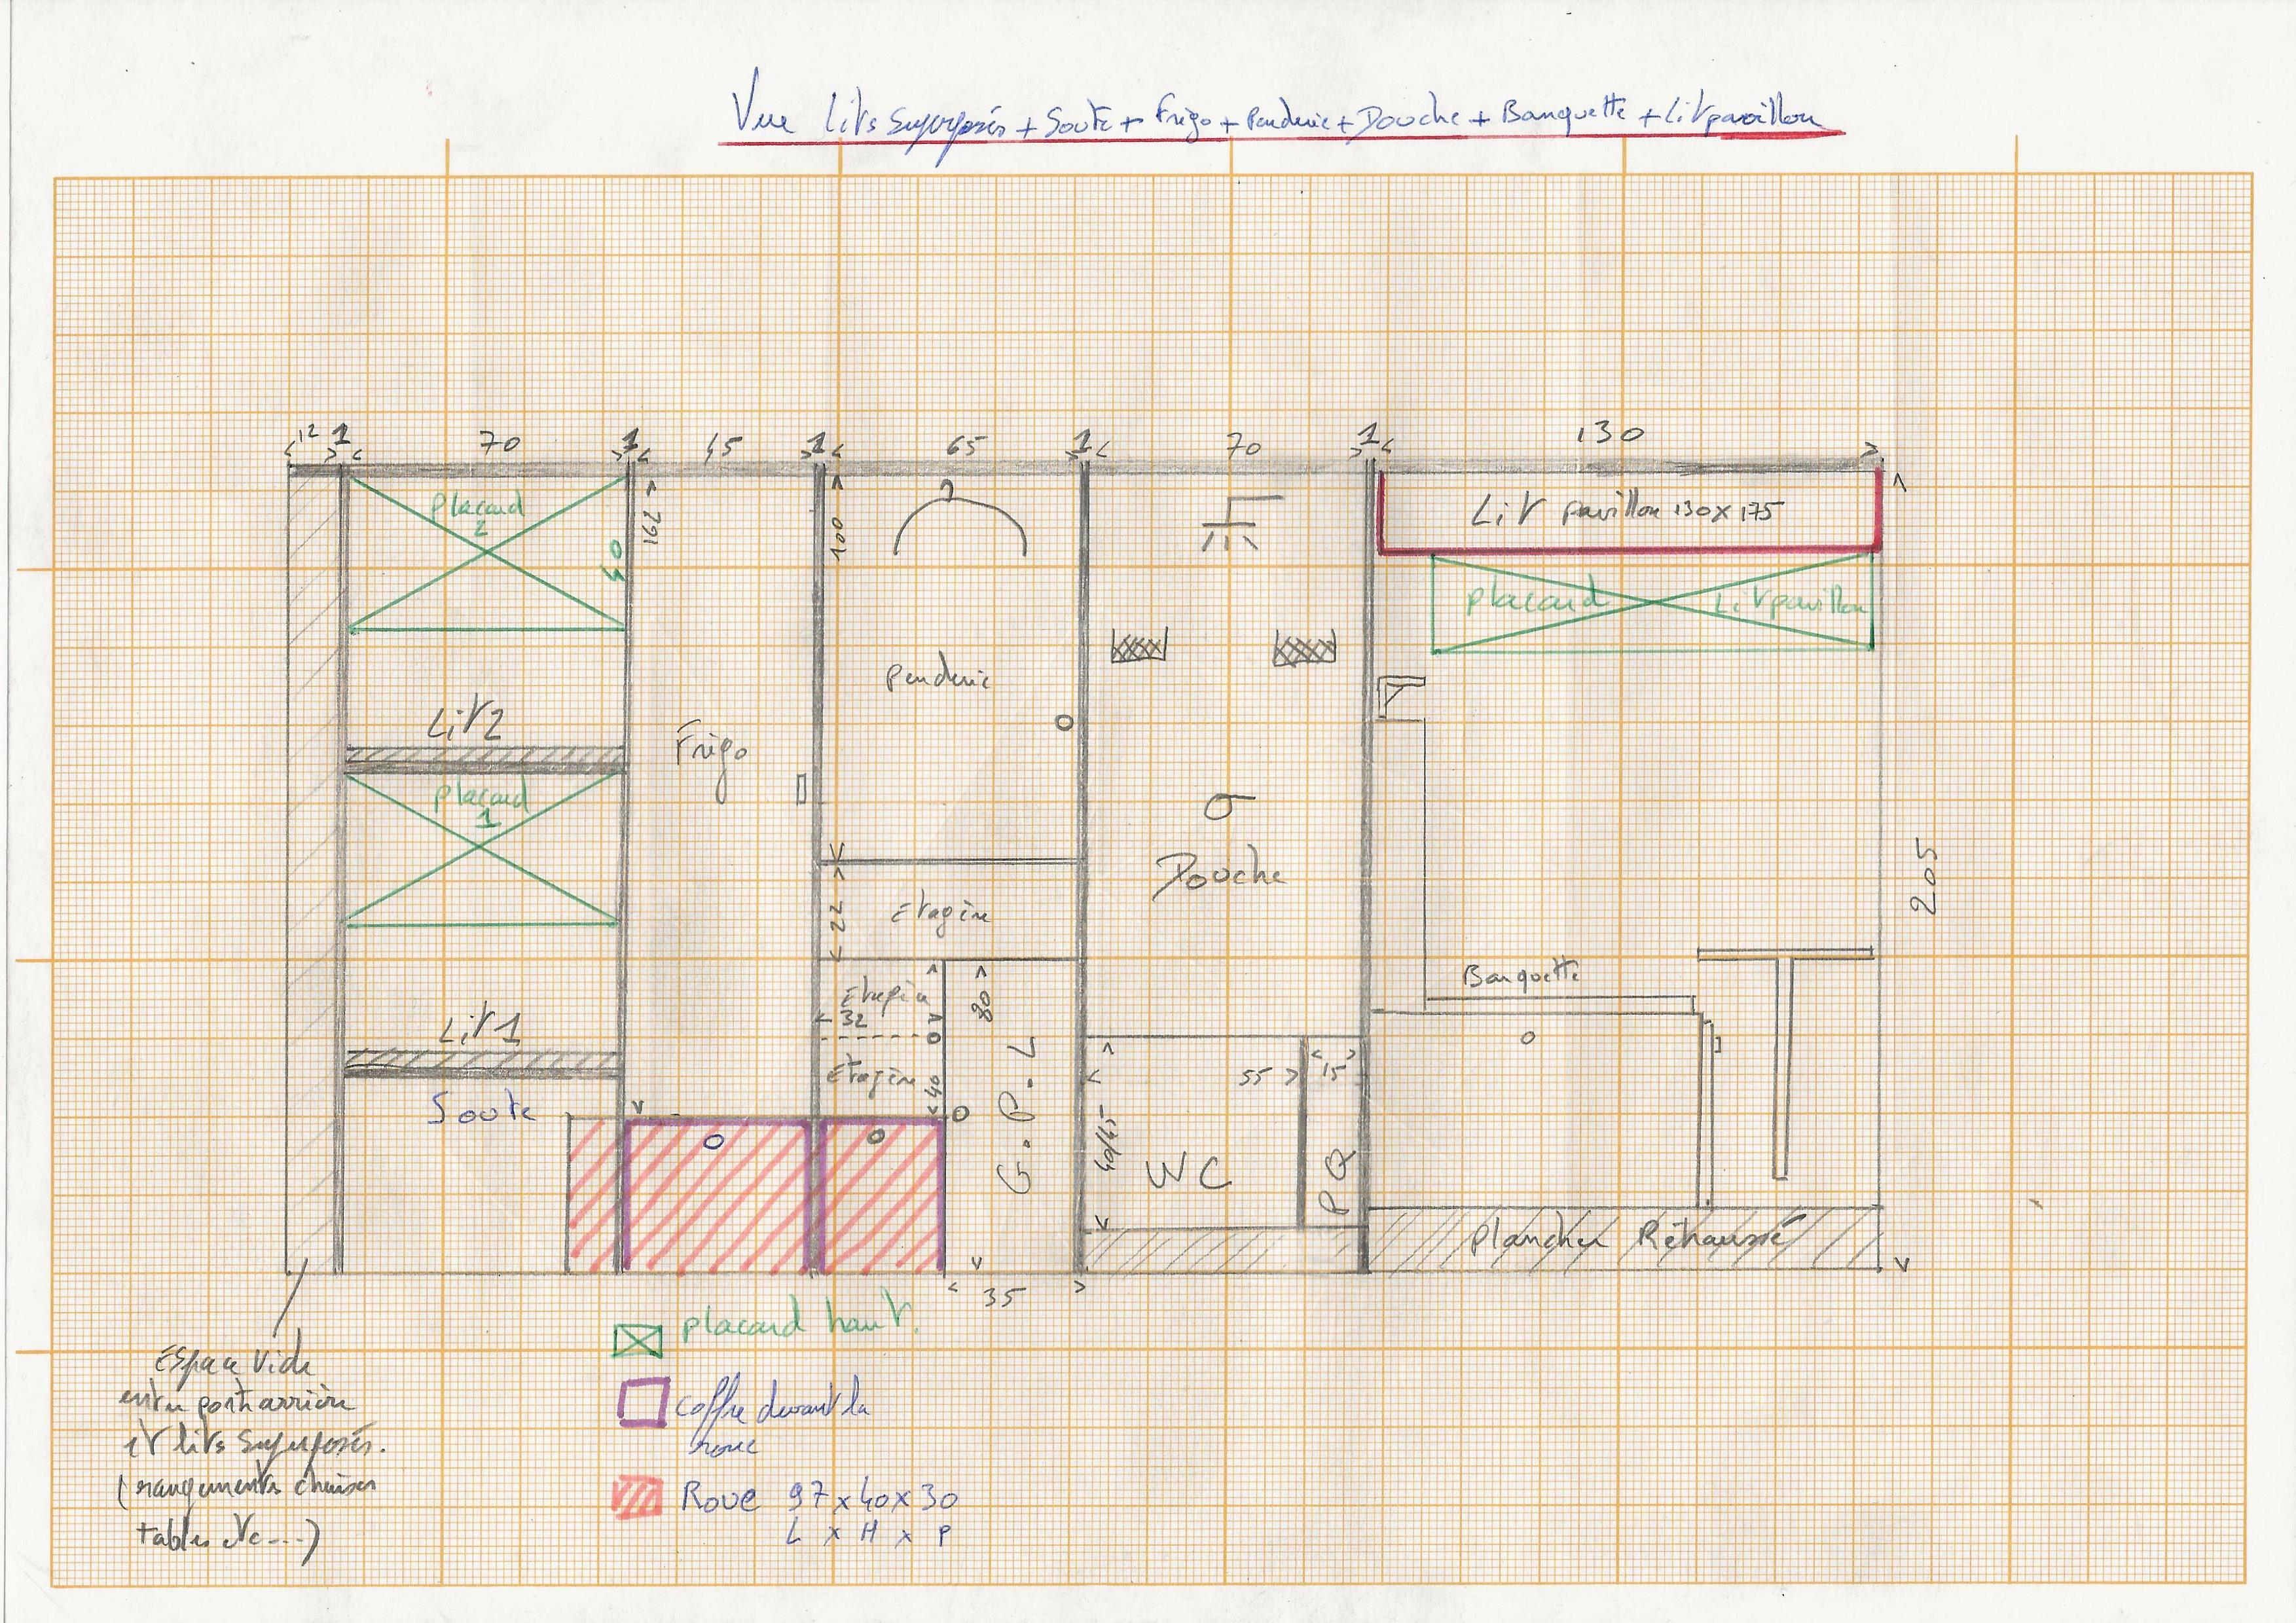 Vue Lits Superposés + Soute + Frigo + Penderie + Douche + Banquette + Lit pavillon
12 1 70 1 45 1 65 1 70 1 130
Placard
2
40
162
100
Lit pavillon 130 x 175
placard Lit pavillon
Penderie
Lit 2
Frigo
placard
1
Douche
Etagère
22
205
Banquette
Etagère
32
80
Lit 1
Etagère
40
G.P.L
55
15
Soute
40/45
WC
PQ
Plancher Réhaussé
35
placard haut.
Espace vide
entre porte arrière
et lits superposés.
(rangements chaises
tables etc...)
coffre devant la
roue
Roue 97 x 40 x 30
L x H x P